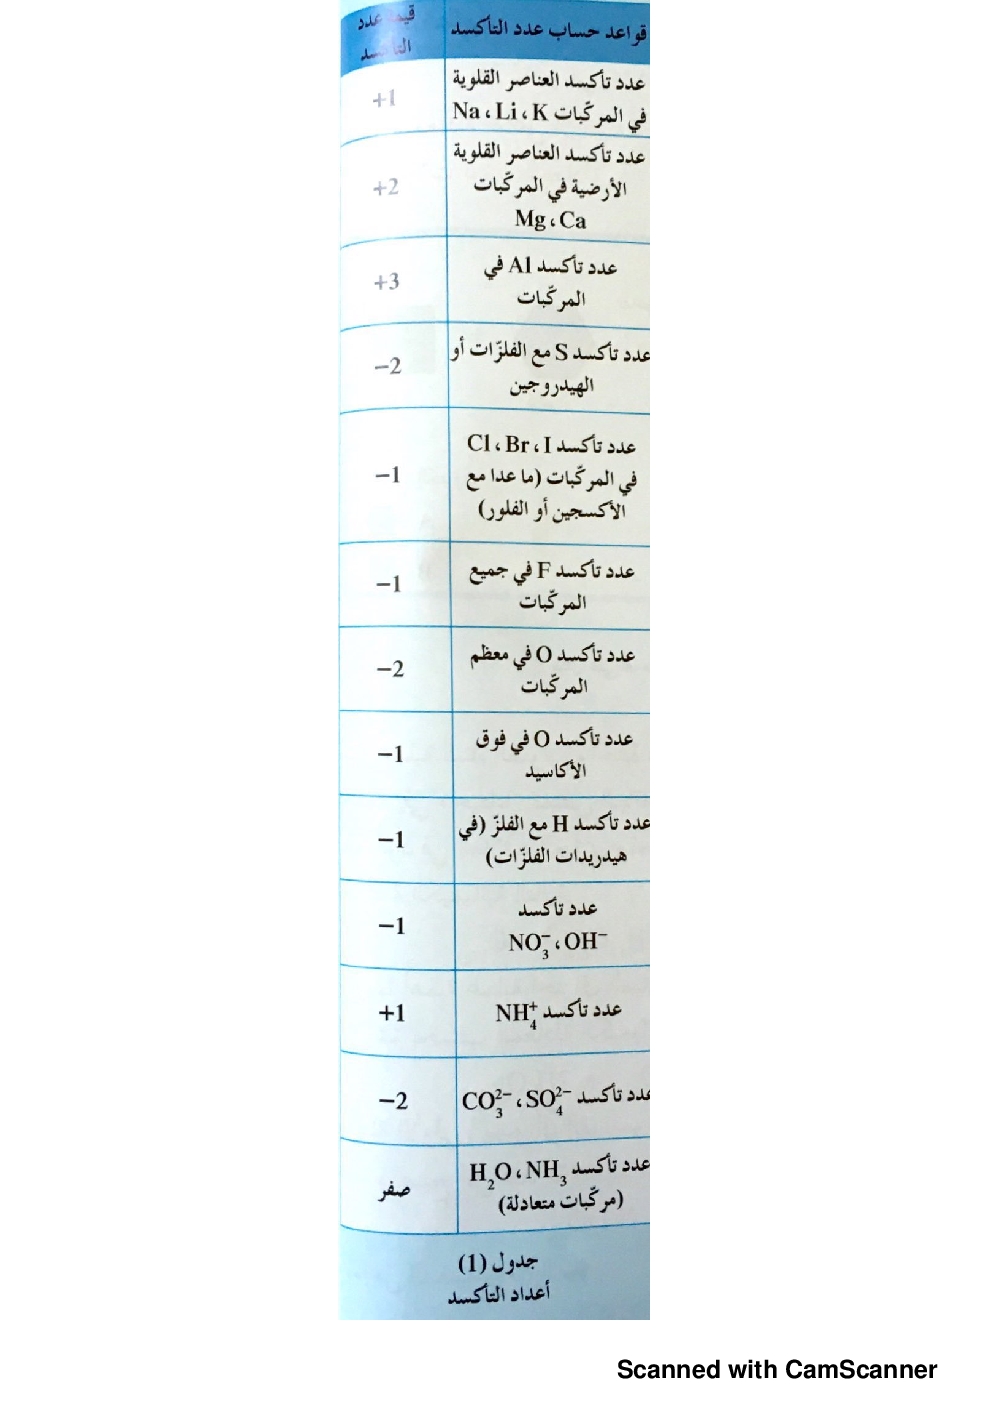 قواعد حساب عدد التأكسد
قيمة عدد
التأكسد
عدد تأكسد العناصر القلوية
في المركّبات Na ، Li ، K
+1
عدد تأكسد العناصر القلوية
الأرضية في المركّبات
Mg ، Ca
+2
عدد تأكسد Al في
المركّبات
+3
عدد تأكسد S مع الفلزّات أو
الهيدروجين
−2
عدد تأكسد Cl ، Br ، I
في المركّبات (ما عدا مع
الأكسجين أو الفلور)
−1
عدد تأكسد F في جميع
المركّبات
−1
عدد تأكسد O في معظم
المركّبات
−2
عدد تأكسد O في فوق
الأكاسيد
−1
عدد تأكسد H مع الفلزّ (في
هيدريدات الفلزّات)
−1
عدد تأكسد
NO₃⁻ ، OH⁻
−1
عدد تأكسد NH₄⁺
+1
عدد تأكسد CO₃²⁻ ، SO₄²⁻
−2
عدد تأكسد H₂O ، NH₃
(مركّبات متعادلة)
صفر
جدول (1)
أعداد التأكسد
Scanned with CamScanner